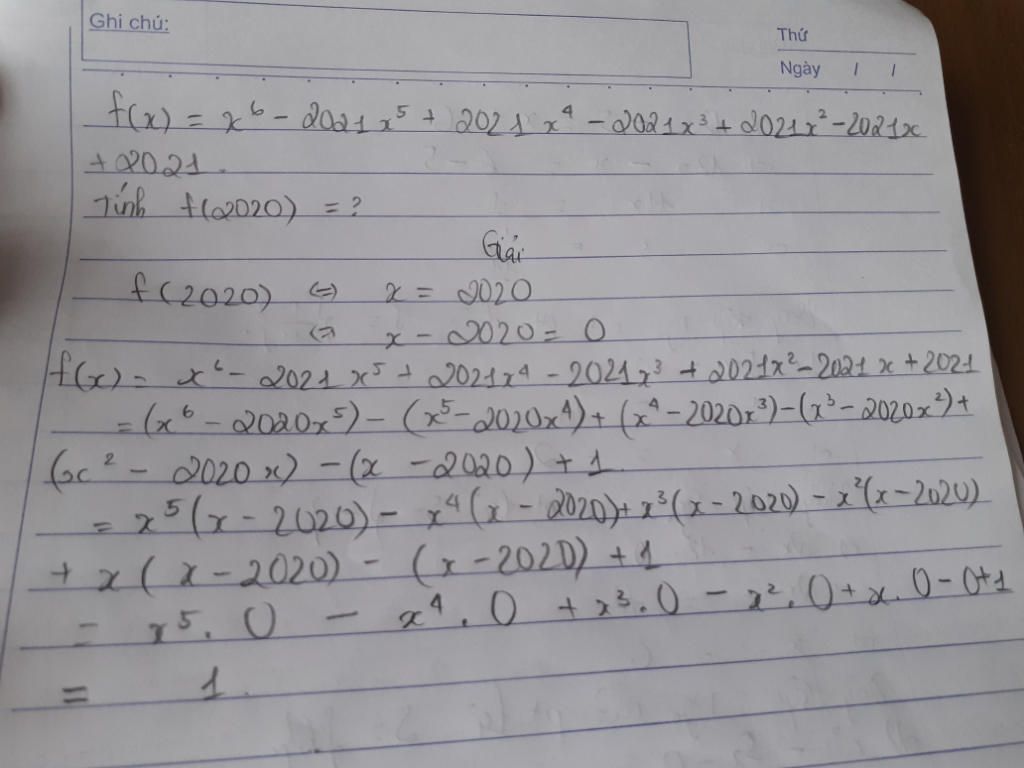 Ghi chú:
Thứ
Ngày / /
f(x) = x⁶ - 2021x⁵ + 2021x⁴ - 2021x³ + 2021x² - 2021x
+ 2021.
Tính f(2020) = ?
Giải
f(2020) ⇔ x = 2020
⇔ x - 2020 = 0
f(x) = x⁶ - 2021x⁵ + 2021x⁴ - 2021x³ + 2021x² - 2021x + 2021
= (x⁶ - 2020x⁵) - (x⁵ - 2020x⁴) + (x⁴ - 2020x³) - (x³ - 2020x²) +
(x² - 2020x) - (x - 2020) + 1
= x⁵(x - 2020) - x⁴(x - 2020) + x³(x - 2020) - x²(x - 2020)
+ x(x - 2020) - (x - 2020) + 1
= x⁵.0 - x⁴.0 + x³.0 - x².0 + x.0 - 0 + 1
= 1.